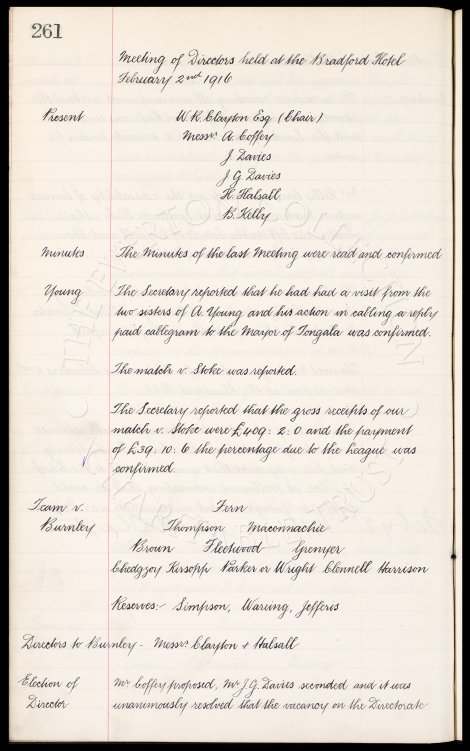 261
Meeting of Directors held at the Bradford Hotel
February 2nd 1916
Present W.R. Clayton Esq (Chair)
Messrs A. Coffey
J Davies
J G Davies
H. Halsall
B. Kelly
Minutes The Minutes of the last Meeting were read and confirmed
Young The Secretary reported that he had had a visit from the
two sisters of A. Young and his action in calling a reply
paid callegram to the Mayor of Tongala was confirmed.
The match v. Stoke was reported.
The Secretary reported that the gross receipts of our
match v. Stoke were £409: 2: 0 and the payment
of £39: 10: 6 the percentage due to the League was
confirmed.
Team v. Fern
Burnley Thompson Maconnachie
Brown Fleetwood Grenyer
Chedgzoy Kirsopp Parker or Wright Clennell Harrison
Reserves:- Simpson, Wareing, Jefferis
Directors to Burnley - Messrs Clayton & Halsall
Election of Mr Coffey proposed, Mr J.G. Davies seconded and it was
Director unanimously resolved that the vacancy on the Directorate